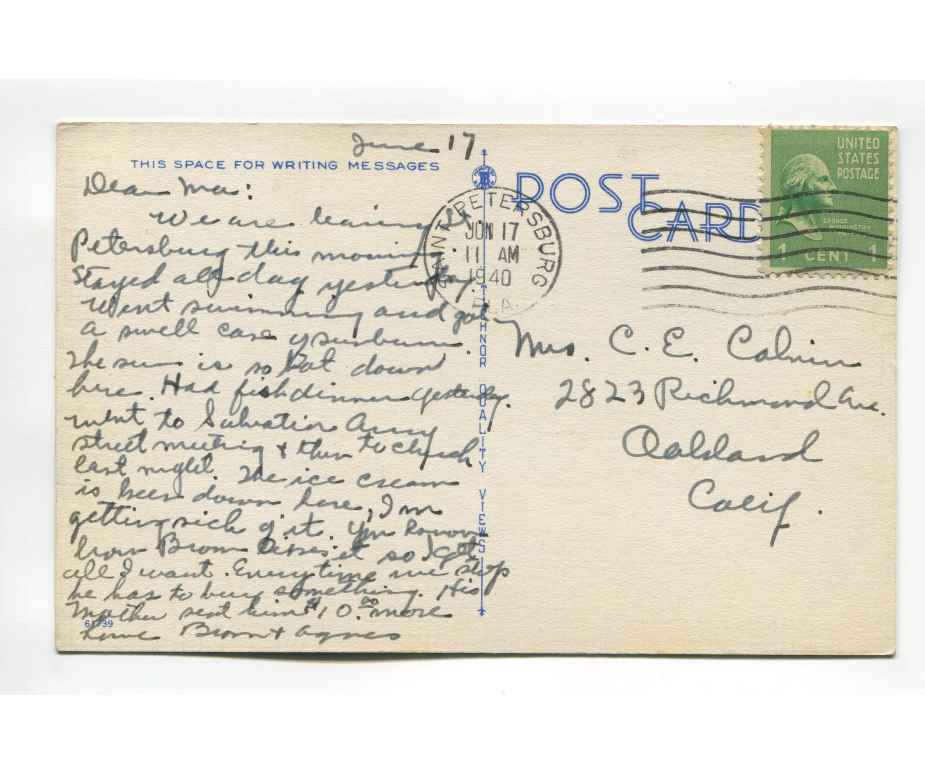 June 17
THIS SPACE FOR WRITING MESSAGES
Dear Ma:
We are leaving
Petersburg this morning
Stayed all day yesterday.
Went swimming and got
a swell case of sunburn.
The sun is so hot down
here. Had fish dinner yesterday.
went to Salvation Army
street meeting & then to church
last night. The ice cream
is keen down here, I'm
getting sick of it. You know
how Brom it so I get
all I want. Everytime we stop
he has to buy something. His
Mother sent him $10.00 more
Love Brom & Agnes
61739
TECHNOR QUALITY VIEWS
POST
CARD
SAINT PETERSBURG
JUN 17
11 AM
1940
UNITED
STATES
POSTAGE
GEORGE
WASHINGTON
1 CENT 1
Mrs. C. E. Calvin
2823 Richmond Ave.
Oakland
Calif.